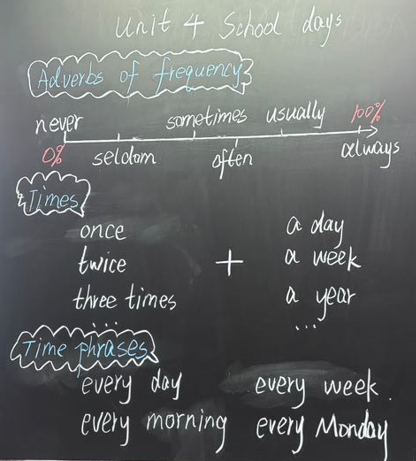 Unit 4 School days
Adverbs of frequency
never sometimes usually 100%
0% seldom often always
Times
once a day
twice + a week
three times a year
... ...
Time phrases
every day every week.
every morning every Monday